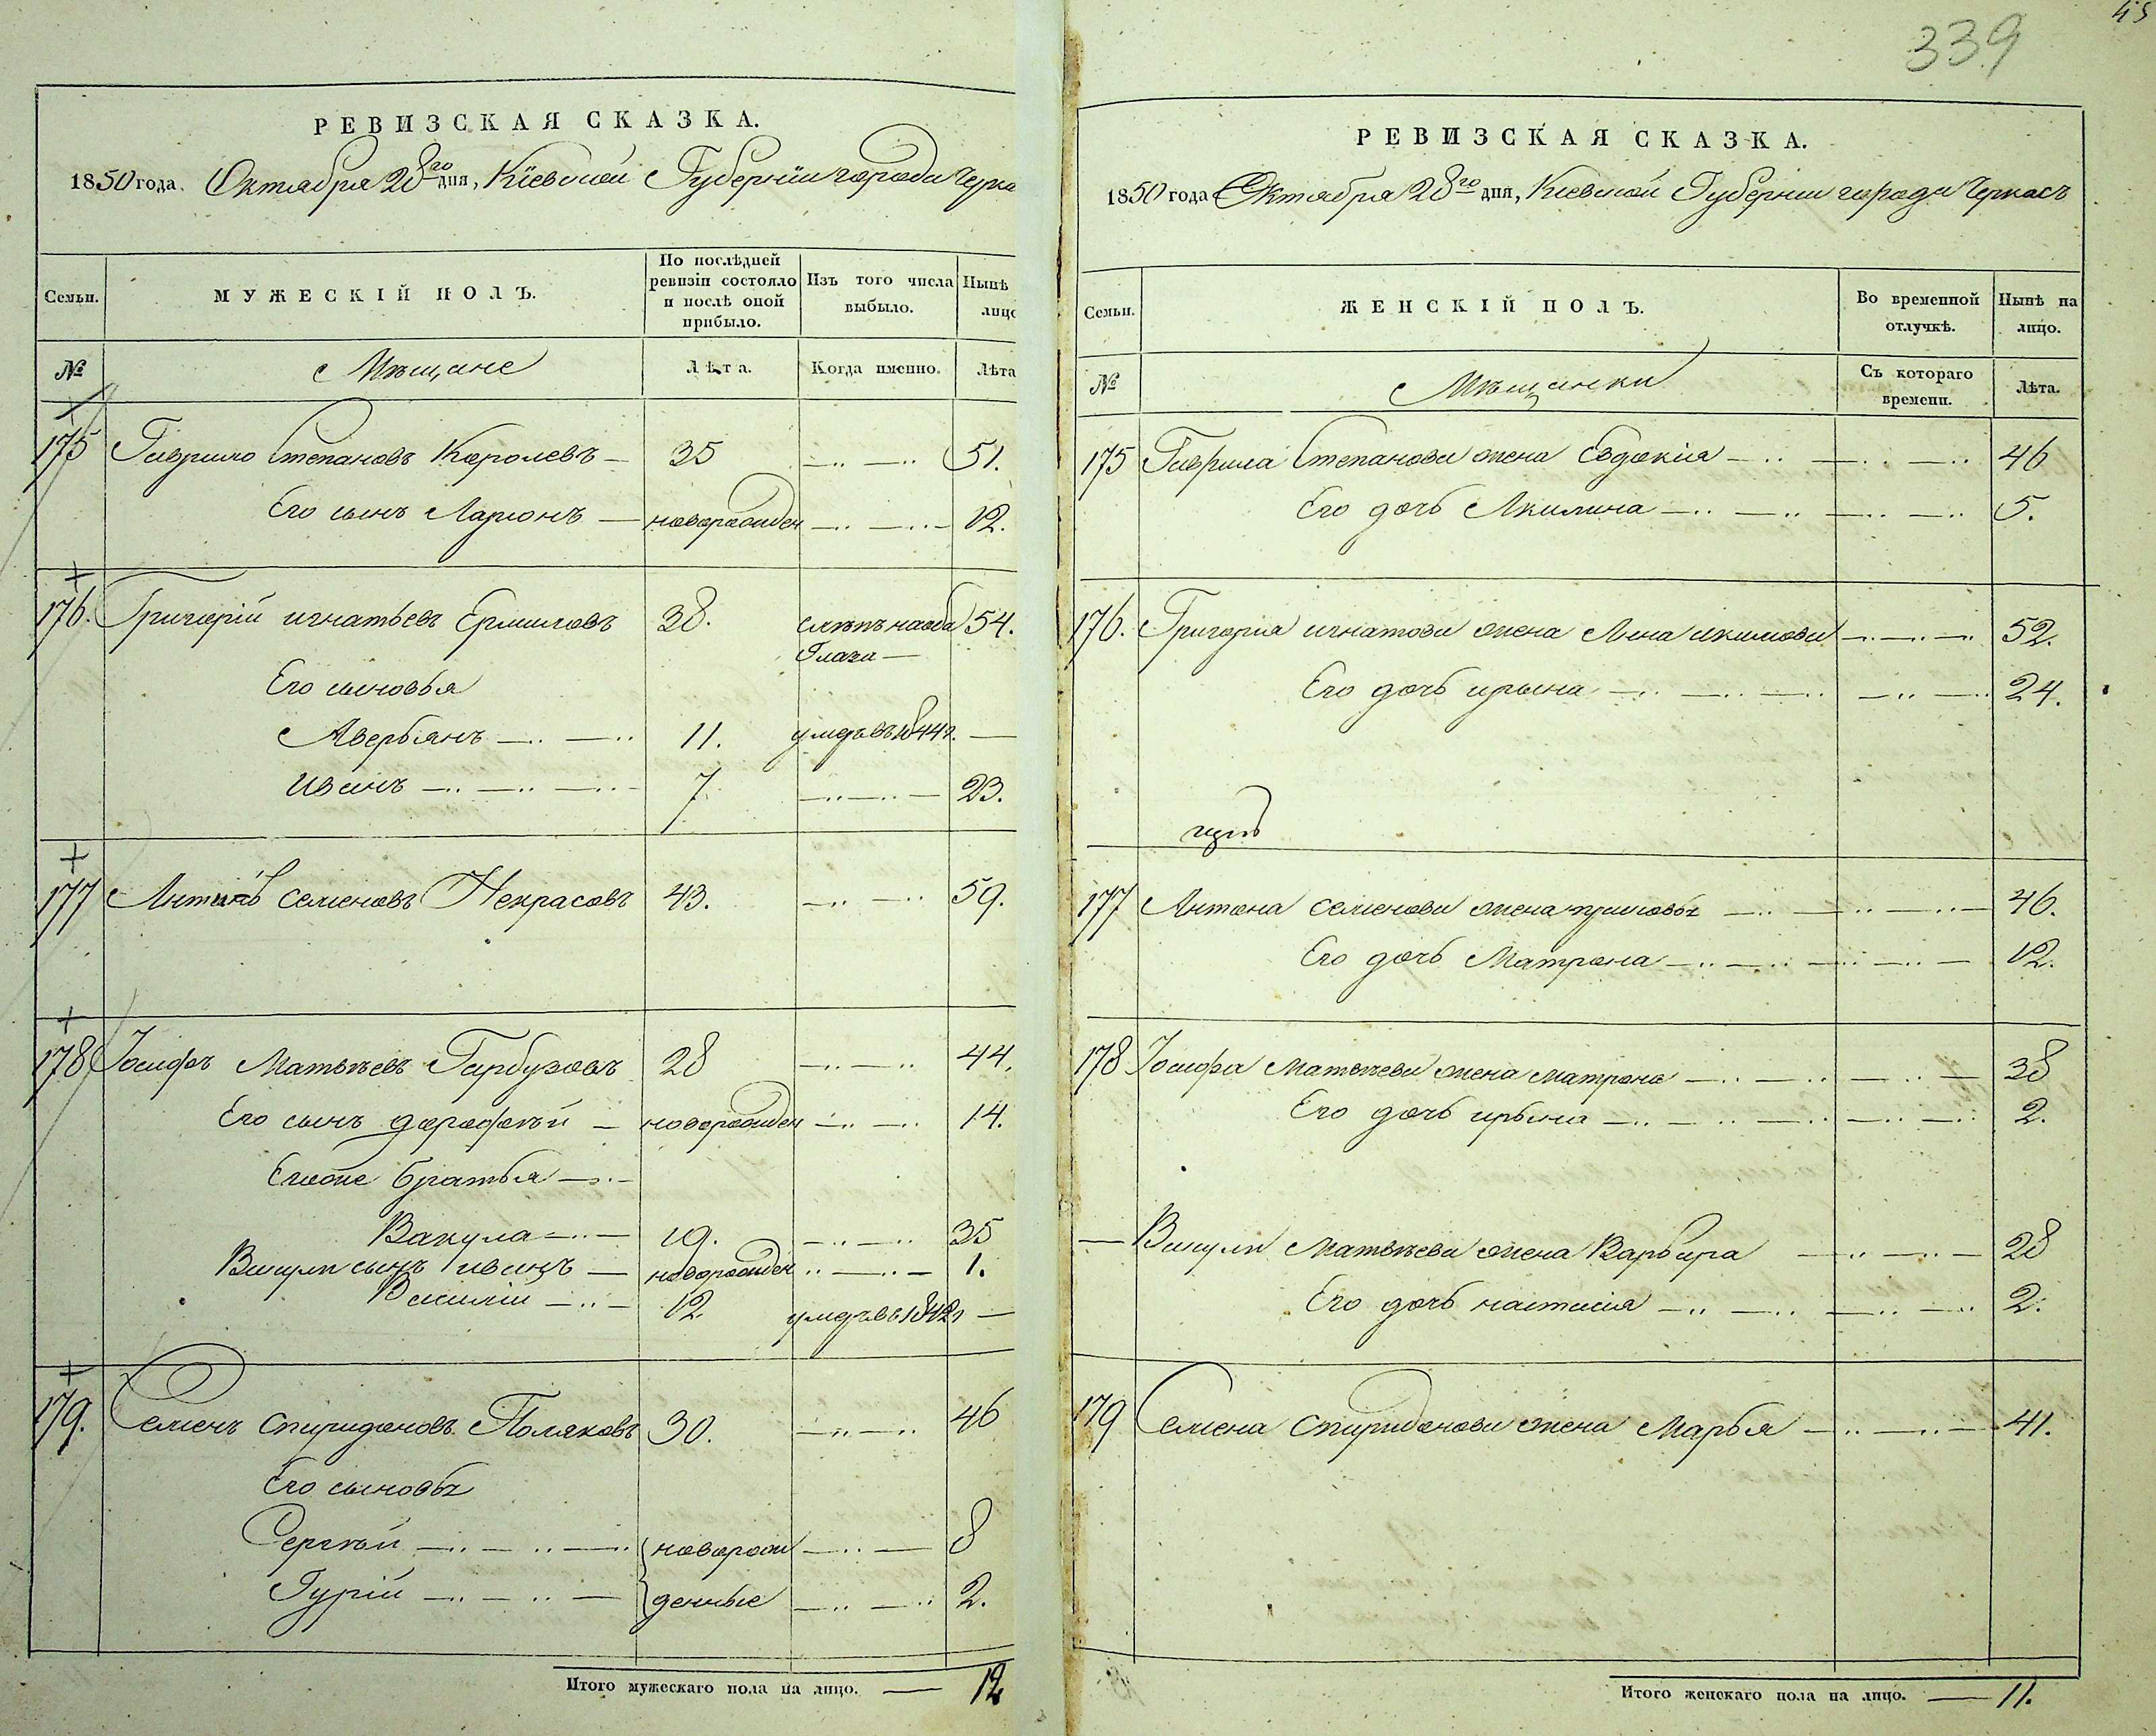 45
339
РЕВИЗСКАЯ СКАЗКА.
1850 года. Октября 28го дня, Кіевской Губерніи города Черка
Семьи. МУЖЕСКІЙ ПОЛЪ. По послѣдней ревизіи состояло и послѣ оной прибыло. Изъ того числа выбыло. Нынѣ лицо
№ Мѣщане Лѣта. Когда именно. Лѣта
175 Гаврило Степановъ Королевъ — 35 51.
Его сынъ Ларионъ — новорожден 12.
176. Григорій игнатьевъ Ермиловъ 38. слѣпъ на оба Глаза — 54.
Его сыновья
Аверьянъ 11. умеръ въ 1844 г. —
иванъ 7 23.
177 Антонъ Семеновъ Некрасовъ 43. 59.
178 Іосифъ Матвѣевъ Гарбузовъ 28 44.
Его сынъ дорофѣй — новорожден 14.
Егоже братья
Вакула 19. 35
Вакулы сынъ иванъ — новорожден 1.
Василій 12 умеръ въ 1842 г —
179. Семенъ спиридоновъ Поляковъ 30. 46
Его сыновья
Сергѣй новорож 8
Гурій денные 2.
Итого мужескаго пола на лицо. — 12
РЕВИЗСКАЯ СКАЗКА.
1850 года Октября 28го дня, Кіевской Губерніи города Черкасъ
Семьи. ЖЕНСКІЙ ПОЛЪ. Во временной отлучкѣ. Нынѣ на лицо.
№ Мѣщанки Съ котораго времени. Лѣта.
175 Гаврила Степанова жена Евдокія 46
Его дочь Акилина 5.
176. Григорія игнатова жена Анна икимова 52.
Его дочь ирына 24.
177 Антона семенова жена 46.
Его дочь Матрона 12.
178 Іосифа Матвѣева жена матрона 38
Его дочь ирына 2.
— Вакулы Матвѣева жена Варвара 28
Его дочь настасія 2.
179 Семена Спиридонова жена Марья 41.
Итого женскаго пола на лицо. — 11.